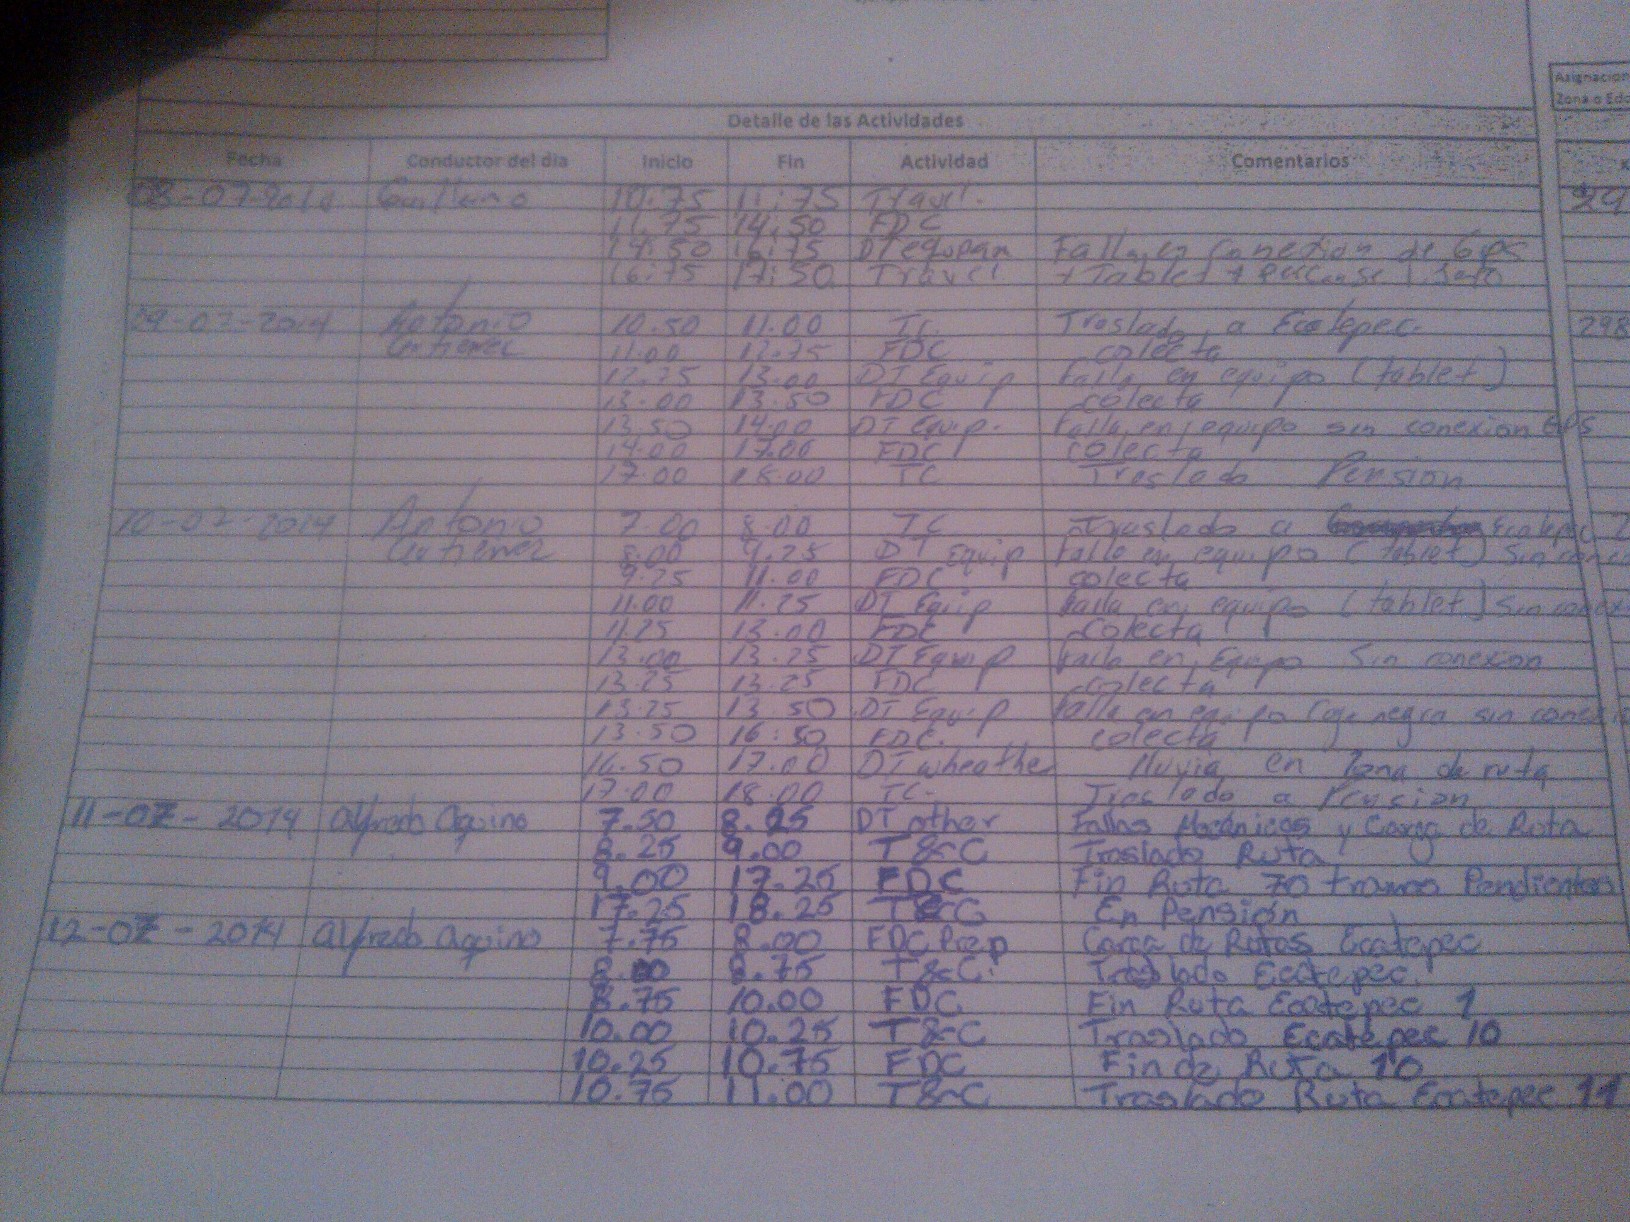 Asignacion
Zona o Edo
Detalle de las Actividades
Fecha Conductor del dia Inicio Fin Actividad Comentarios
08-07-2014 10:75 11:75 Travel.
11.75 14:50 FDC
14:50 16:75 DT equpan Falla en conexion de Gps
16:75 17:50 Travel + Tablet +
09-07-2014 Antonio 10.50 11.00 TC Traslado a Ecatepec. 298
Gutierrez 11.00 12.75 FDC colecta
12.75 13.00 DT Equip Falla en equipo (tablet)
13.00 13.50 FDC colecta
13.50 14.00 DT Equip. Falla en equipo sin conexion GPS
14.00 17.00 FDC colecta
17.00 18.00 TC Traslado Pension
10-07-2014 Antonio 7.00 8.00 TC Traslado a Ecatepec
Gutierrez 8:00 9.25 DT Equip Falla en equipo (tablet) Sin conex
9.25 11.00 FDC colecta
11.00 11.25 DT Equip Falla en equipo (tablet) Sin conex
11.25 13.00 FDC Colecta
13.00 13.25 DT Equip Falla en Equipo Sin conexion
13.25 13.25 FDC colecta
13.25 13.50 DT Equip Falla en equipo caja negra sin conexio
13.50 16:50 FDC. colecta
16.50 17.00 DT wheather lluvia en zona de ruta
17.00 18.00 TC. Traslado a Pension
11-07-2014 Alfredo Aquino 7.50 8.25 DT other Fallas Mecánicas y Carga de Ruta
8.25 9.00 T&C Traslado Ruta
9.00 17.25 FDC Fin Ruta 70 tramos Pendientes
17.25 18.25 T&C En Pensión
12-07-2014 Alfredo Aquino 7.75 8.00 FDC Prep Carga de Rutas Ecatepec
8.00 8.75 T&C. Traslado Ecatepec.
8.75 10.00 FDC Fin Ruta Ecatepec 1
10.00 10.25 T&C Traslado Ecatepec 10
10.25 10.75 FDC Fin de Ruta 10
10.75 11.00 T&C Traslado Ruta Ecatepec 11